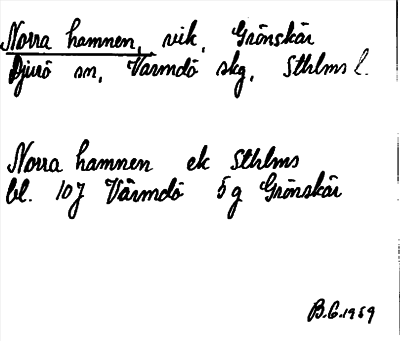 Norra hamnen, vik, Grönskär
Djurö sn, Värmdö skg, Sthlms l.
Norra hamnen ek Sthlms
bl. 10J Värmdö 5g Grönskär
B.G. 1959